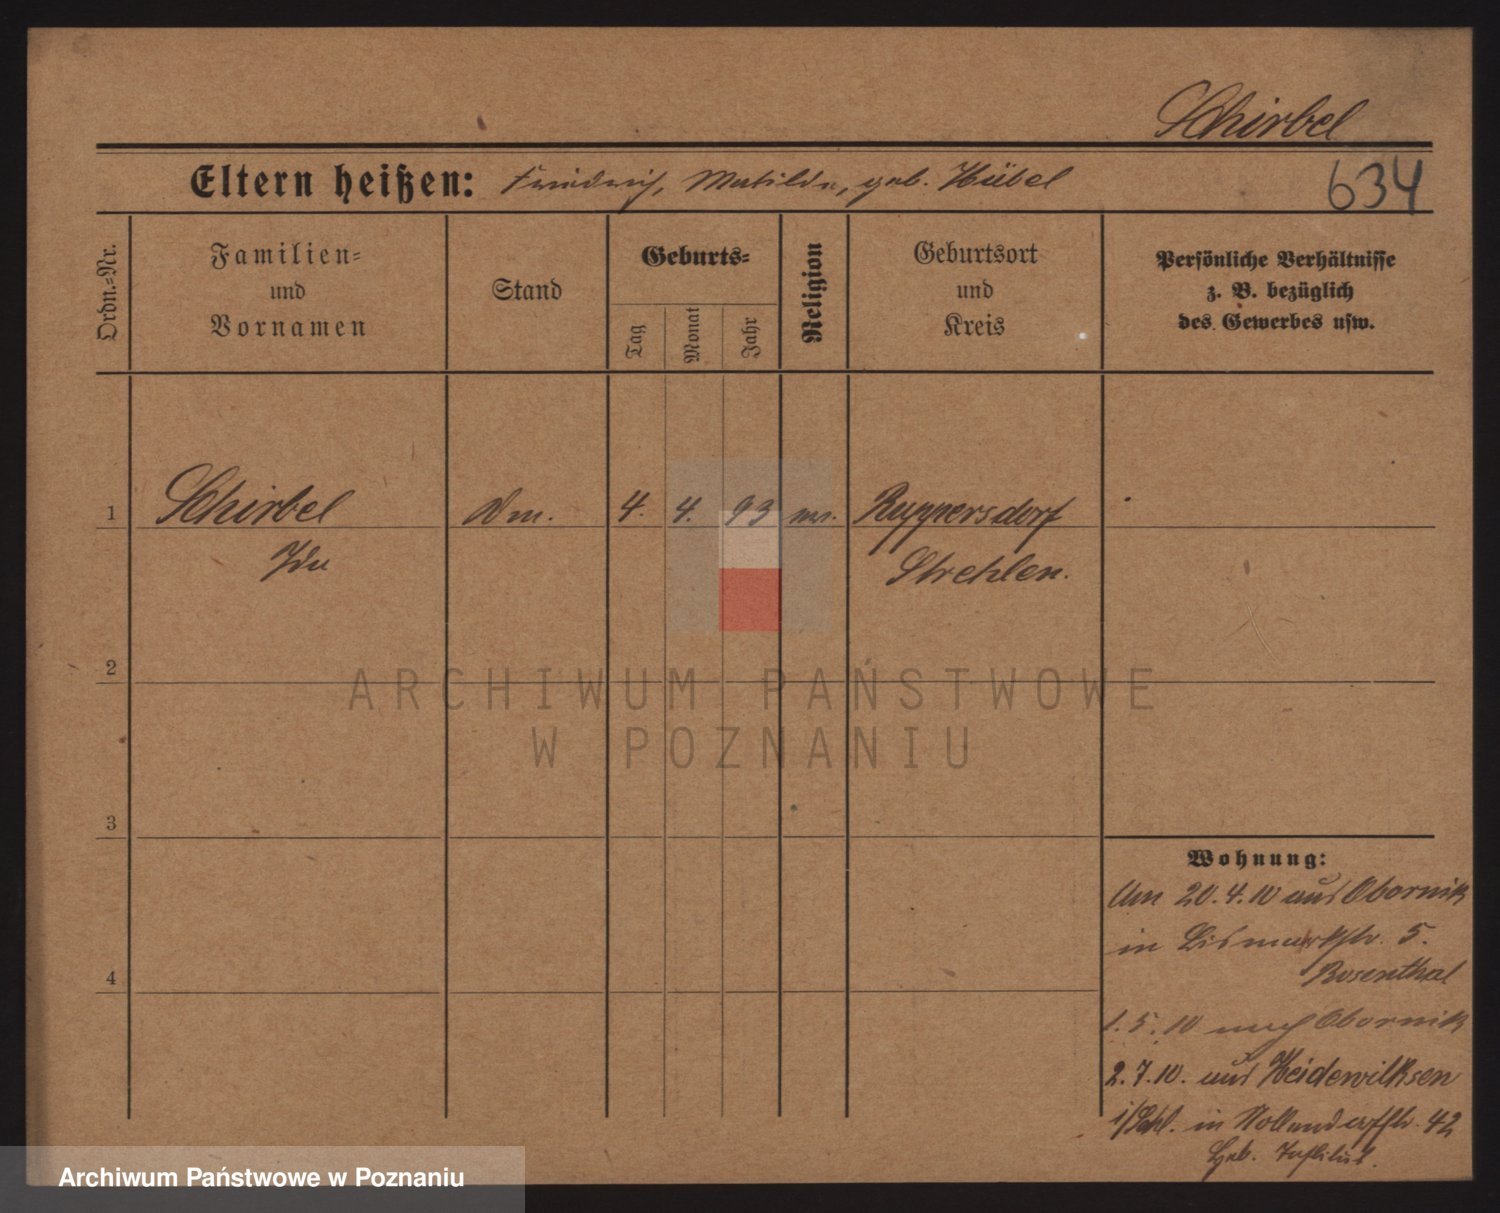 Schirbel
Eltern heißen: Friedrich, Matilde, geb. Hübel
634
Ordn.-Nr.
Familien- und Vornamen
Stand
Geburts-
Tag
Monat
Jahr
Religion
Geburtsort und Kreis
Persönliche Verhältnisse
z. B. bezüglich
des Gewerbes usw.
1 Schirbel Dm. 4. 4. 93 ev. Ruppersdorf
Ida Strehlen.
2
ARCHIWUM PAŃSTWOWE
W POZNANIU
3
Wohnung:
Am 20.4.10 aus Obornik
in Bismarkstr. 5.
Rosenthal
4
1.5.10 nach Obornik
2.7.10. aus Heidewilksen
i/Schl. in Nollendorffstr. 42
Archiwum Państwowe w Poznaniu